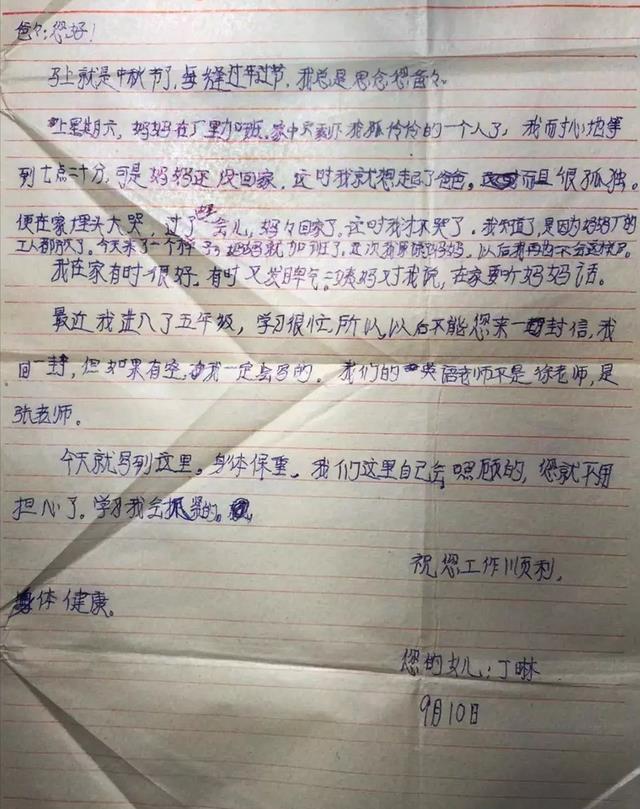 爸々:您好!
马上就是中秋节了,每缝过年过节,我总是思念您爸々。
上星期六,妈妈在厂里加班,家中只剩下我孤伶伶的一个人了,我耐心地等
到七点二十分,可是妈妈还没回家,这时我就想起了爸爸。而且很孤独。
便在家埋头大哭,过了一会儿,妈々回家了,这时我才不哭了。我知道了,是因为妈妈厂的
工人都放了。今天来了一个样子,妈妈就加班了。这次我原谅妈妈,以后我再也不会这样了。
我在家有时很好,有时又发脾气,姨妈对我说,在家要听妈妈话。
最近我进入了五年级,学习很忙,所以,以后不能您来一封信,我
回一封,但如果有空,我一定会写的。我们的英语老师不是徐老师,是
张老师。
今天就写到这里。身体保重。我们这里自己会照顾的,您就不用
担心了。学习我会抓紧的。
祝您工作顺利,
身体健康。
您的女儿:丁琳
9月10日